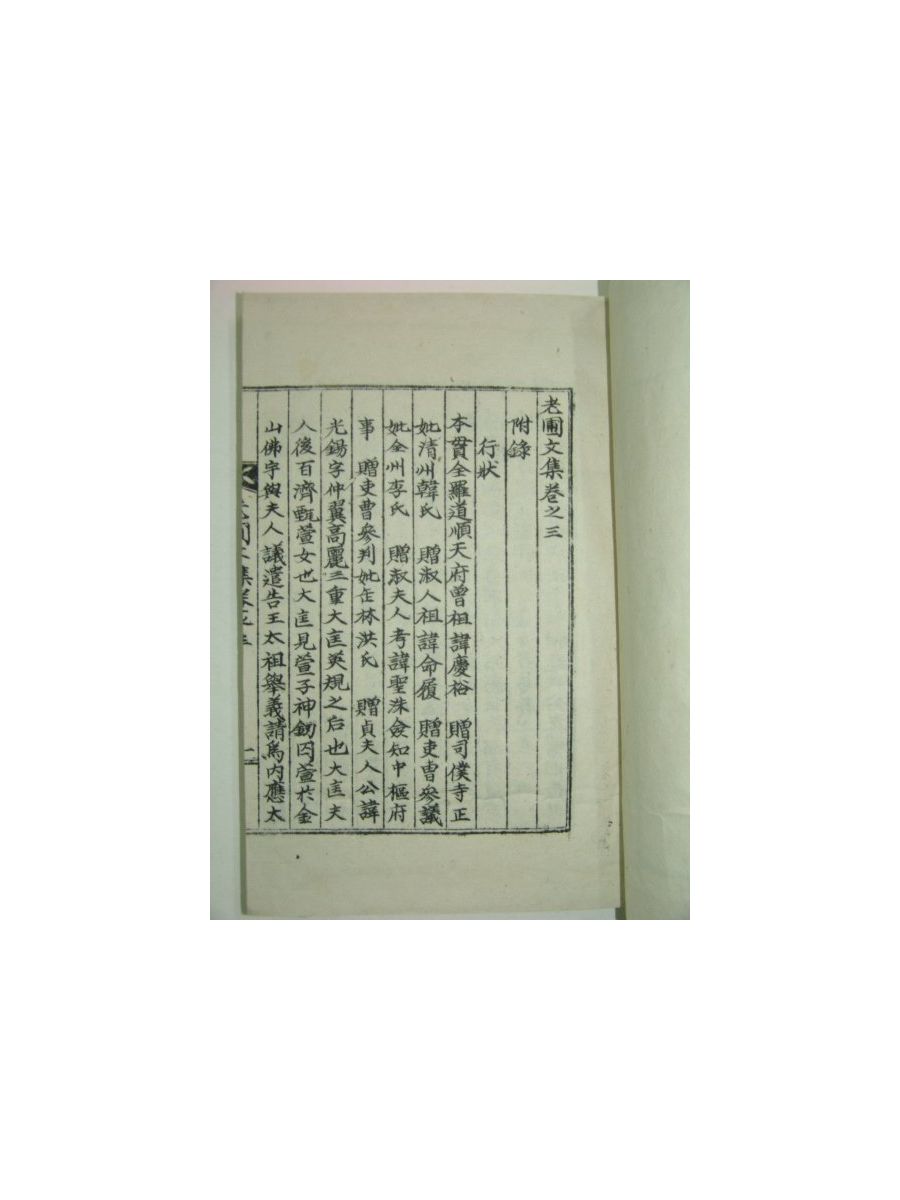 老圃文集卷之三
附錄
行狀
本貫全羅道順天府曾祖諱慶裕 贈司僕寺正
妣清州韓氏 贈淑人祖諱命履 贈吏曹參議
妣全州李氏 贈淑夫人考諱聖洙僉知中樞府
事 贈吏曹參判妣缶林洪氏 贈貞夫人公諱
光錫字仲翼高麗三重大匡英規之后也大匡夫
人後百濟甄萱女也大匡見萱子神釰囚萱於金
山佛宇與夫人議遣告王太祖舉義請爲內應太